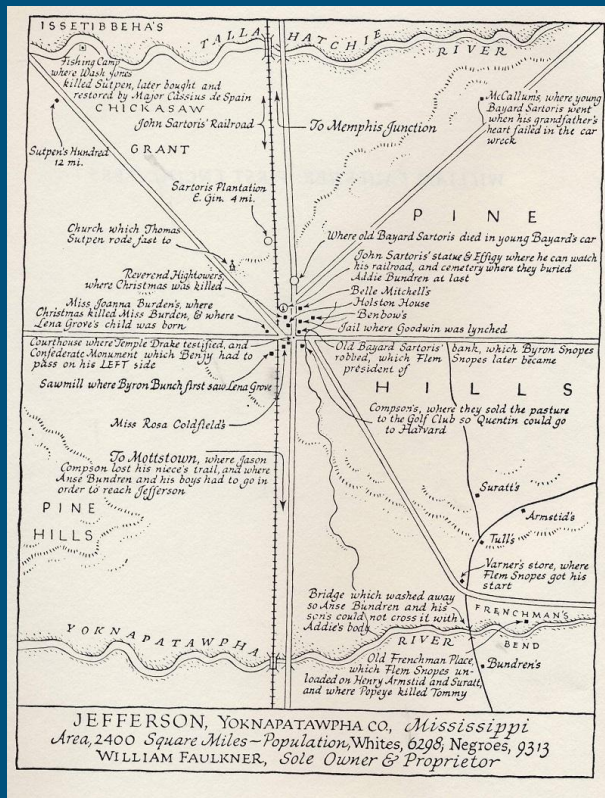 ISSETIBBEHA'S
TALLA HATCHIE
RIVER
Fishing Camp
where Wash Jones
killed Sutpen, later bought and
restored by Major Cassius de Spain
CHICKASAW
John Sartoris' Railroad
To Memphis Junction
McCallum's, where young
Bayard Sartoris went
when his grandfather's
heart failed in the car
wreck
Sutpen's Hundred
12 mi.
GRANT
Sartoris Plantation
E. Gin. 4 mi.
PINE
Church which Thomas
Sutpen rode fast to
Where old Bayard Sartoris died in young Bayard's car
John Sartoris' statue & Effigy where he can watch
his railroad, and cemetery where they buried
Addie Bundren at last
Reverend Hightower's,
where Christmas was killed
Belle Mitchell's
Holston House
Benbow's
Jail where Goodwin was lynched
Miss Joanna Burden's, where
Christmas killed Miss Burden, & where
Lena Grove's child was born
Courthouse where Temple Drake testified, and
Confederate Monument which Benjy had to
pass on his LEFT side
Old Bayard Sartoris' bank, which Byron Snopes
robbed, which Flem Snopes later became
president of
HILLS
Sawmill where Byron Bunch first saw Lena Grove
Compson's, where they sold the pasture
to the Golf Club so Quentin could go
to Harvard
Miss Rosa Coldfield's
To Mottstown, where Jason
Compson lost his niece's trail, and where
Anse Bundren and his boys had to go in
order to reach Jefferson
PINE
HILLS
Suratt's
Armstid's
Tull's
Varner's store, where
Flem Snopes got his
start
Bridge which washed away
so Anse Bundren and his
sons could not cross it with
Addie's body
FRENCHMAN'S
BEND
YOKNAPATAWPHA
RIVER
Old Frenchman Place,
which Flem Snopes un-
loaded on Henry Armstid and Suratt,
and where Popeye killed Tommy
Bundren's
JEFFERSON, YOKNAPATAWPHA CO., Mississippi
Area, 2400 Square Miles — Population, Whites, 6298; Negroes, 9313
WILLIAM FAULKNER, Sole Owner & Proprietor